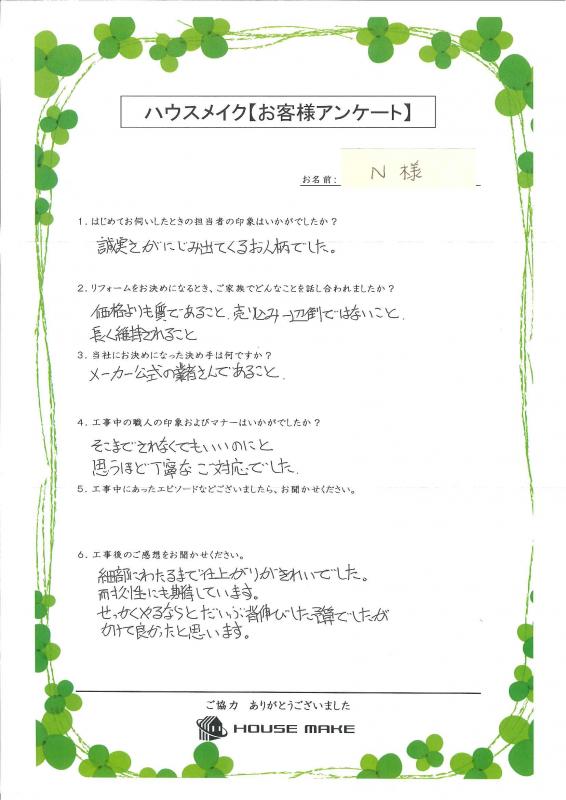 ハウスメイク【お客様アンケート】
お名前: N 様
1．はじめてお伺いしたときの担当者の印象はいかがでしたか？
誠実さがにじみ出てくるお人柄でした。
2．リフォームをお決めになるとき、ご家族でどんなことを話し合われましたか？
価格よりも質であること、売り込み一辺倒ではないこと、
長く維持されること
3．当社にお決めになった決め手は何ですか？
メーカー公式の業者さんであること、
4．工事中の職人の印象およびマナーはいかがでしたか？
そこまでされなくてもいいのにと
思うほど丁寧なご対応でした。
5．工事中にあったエピソードなどございましたら、お聞かせください。
6．工事後のご感想をお聞かせください。
細部にわたるまで仕上がりがきれいでした。
耐久性にも期待しています。
せっかくやるならとだいぶ背伸びした予算でしたが
かけて良かったと思います。
ご協力　ありがとうございました
HOUSE MAKE